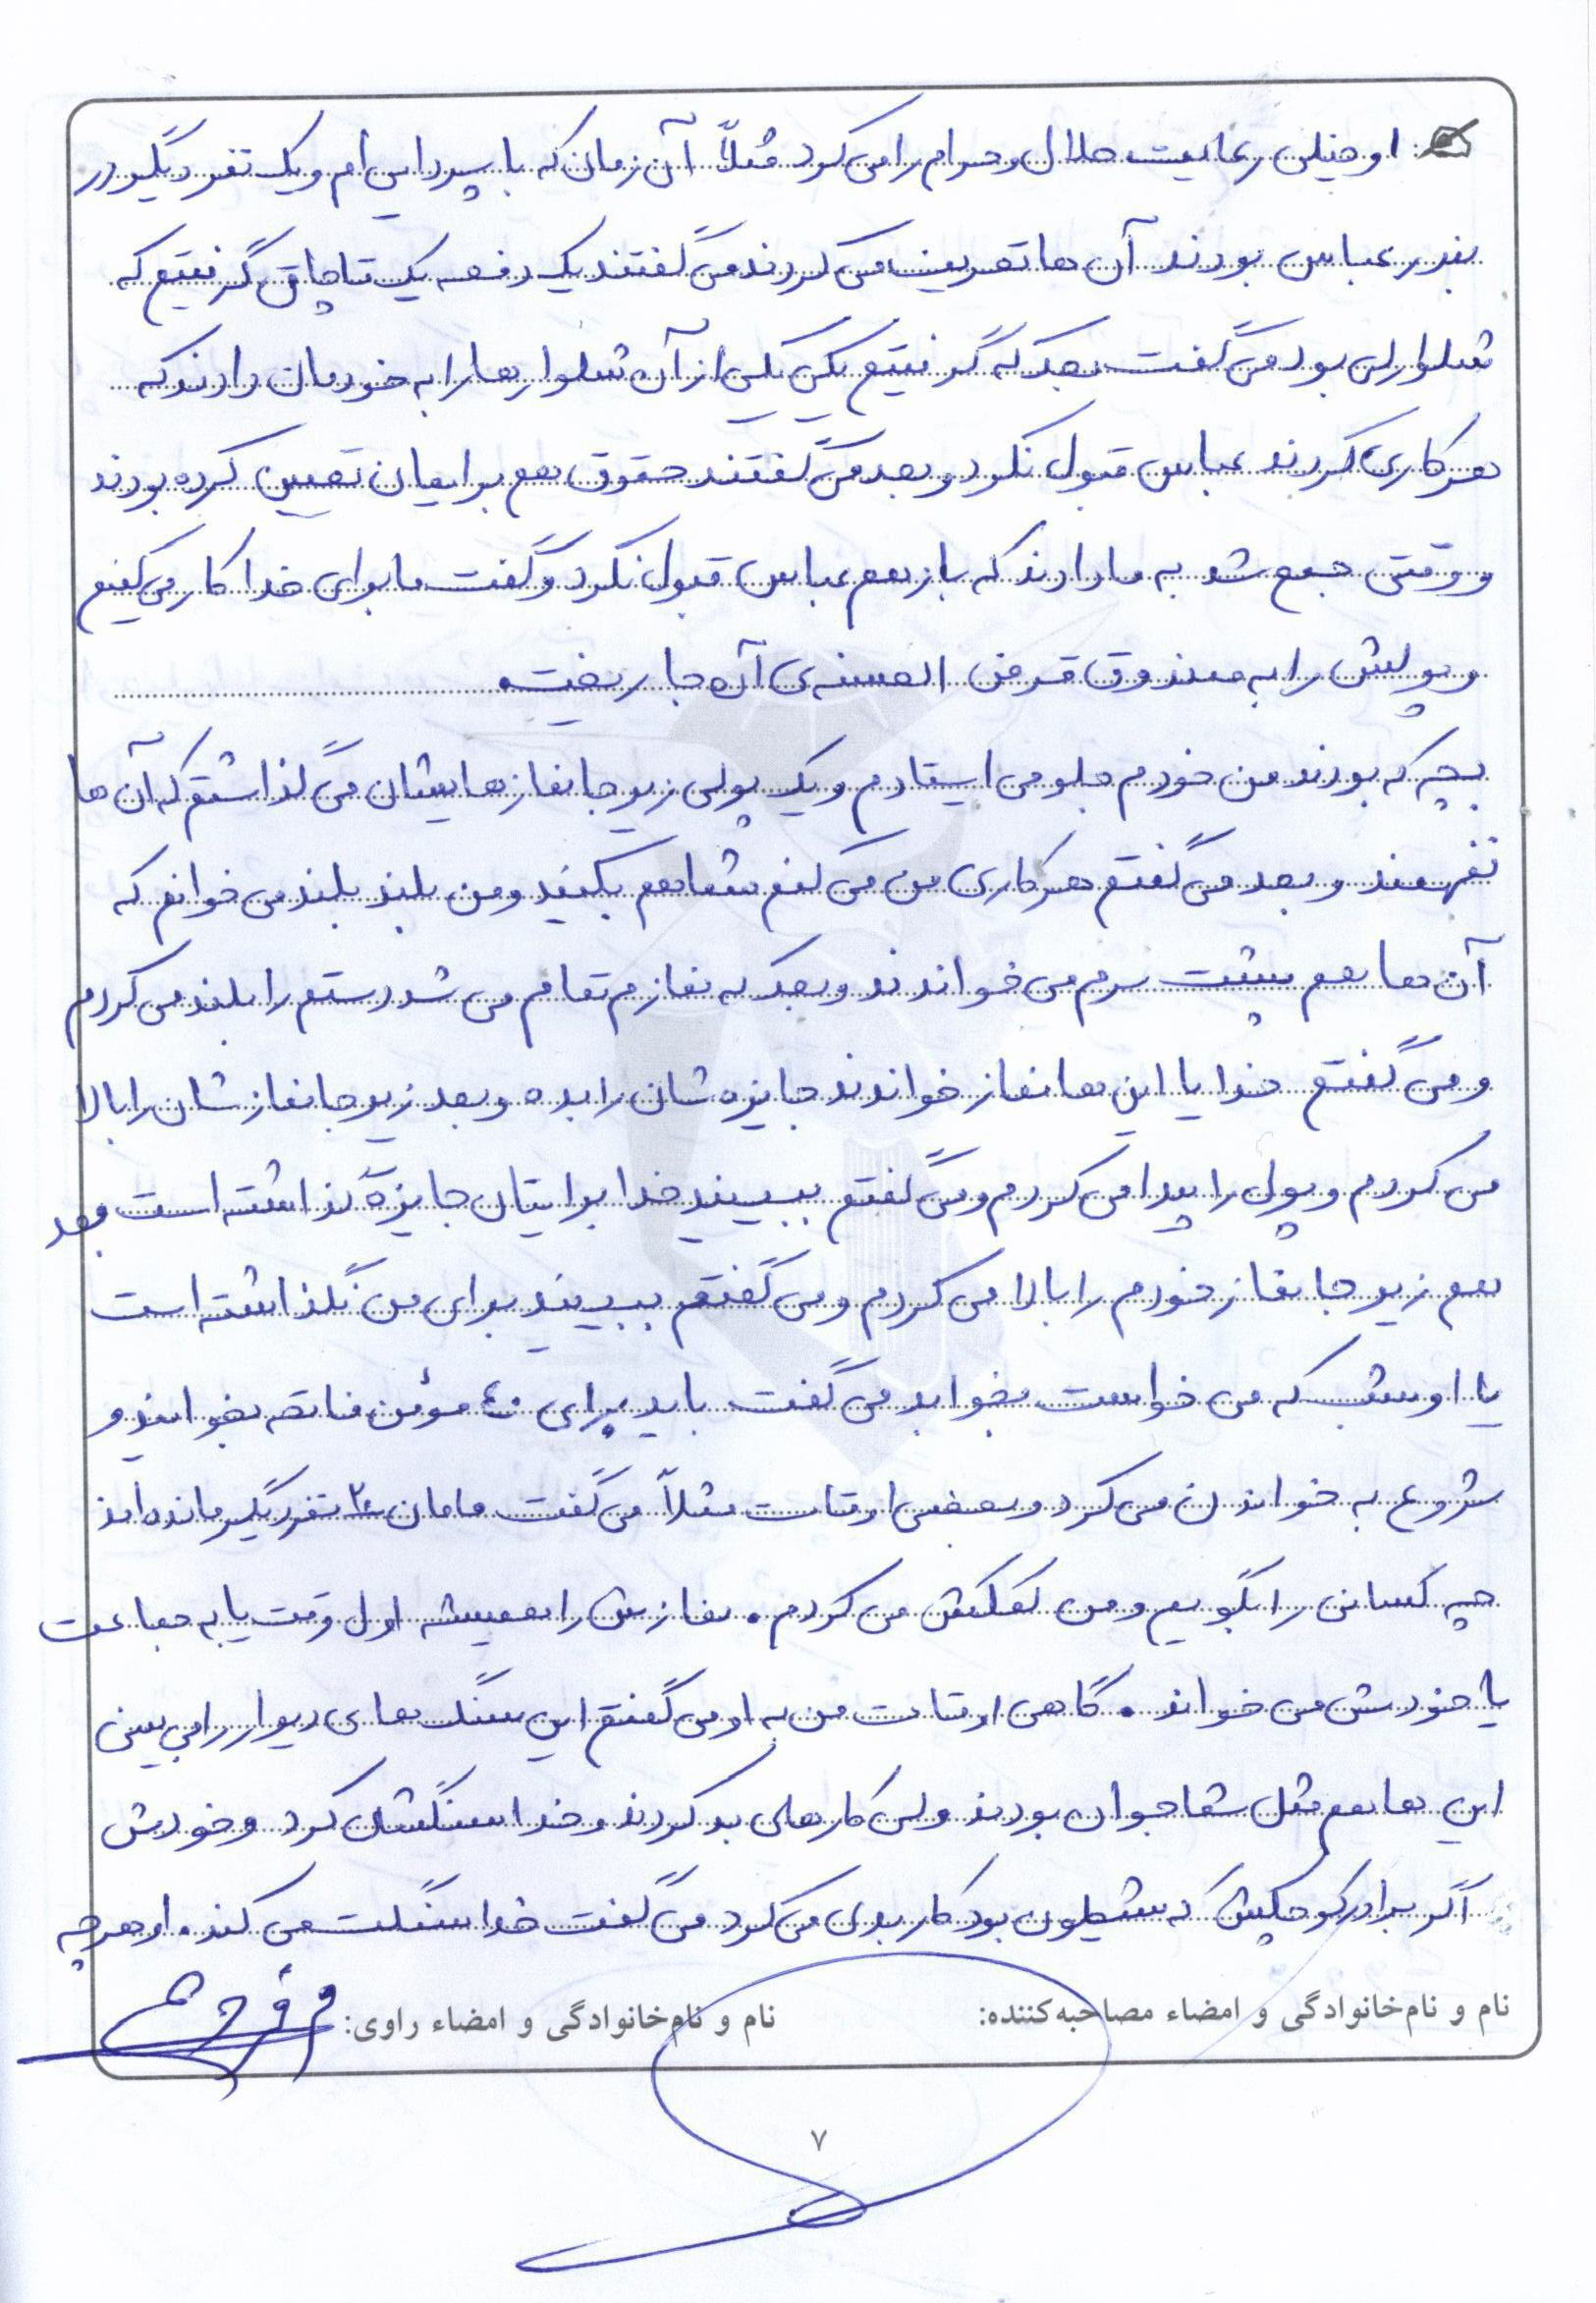 او خیلی رعایت حلال و حرام را می کرد مثلاً آن زمان که با پسردایی ام و یک نفر دیگر در
بندرعباس بودند آن ها تعریف می کردند می گفتند یک دفعه یک قاچاق گرفتیم که
شلوار لی بود می گفت بعد که گرفتیم یکی یکی از آن شلوارها را به خودمان دادند که
هر کاری کردند عباس قبول نکرد و بعد می گفتند حقوق هم برایمان تعیین کرده بودند
و وقتی جمع شد به ما دادند که باز هم عباس قبول نکرد و گفت ما برای خدا کار می کنیم
و پولش را به صندوق قرض الحسنه ی آن جا ریخت.
بچه که بودند من خودم جلو می ایستادم و یک پولی زیر جانمازهایشان می گذاشتم که آن ها
نفهمند و بعد می گفتم هر کاری من می کنم شما هم بکنید و من بلند بلند می خوانم که
آن ها هم پشت سرم می خواندند و بعد که نمازم تمام می شد دستم را بلند می کردم
و می گفتم خدایا این ها نماز خواندند جایزه شان را بده و بعد زیر جانمازشان را بالا
می کردم و پول را پیدا می کردم و می گفتم ببینید خدا برایتان جایزه گذاشته است بعد
هم زیر جانماز خودم را بالا می کردم و می گفتم ببینید برای من نگذاشته است
یا او شب که می خواست بخوابد می گفت باید برای ۴۰ مؤمن فاتحه بخوانید و
شروع به خواندن می کرد و بعضی اوقات مثلاً می گفت مامان ۲۰ نفر دیگر مانده اند
چه کسانی را بگویم و من کمکش می کردم. نمازش را همیشه اول وقت یا به جماعت
یا خودش می خواند. گاهی اوقات من به او می گفتم این سنگ های دیوار را می بینی
این ها هم مثل شما جوان بودند ولی کارهای بد کردند و خدا سنگشان کرد و خودش
اگر برادر کوچکش که شیطون بود کار بدی می کرد می گفت خدا سنگت می کند. او هر چه
نام و نام خانوادگی و امضاء مصاحبه کننده: نام و نام خانوادگی و امضاء راوی:
۷